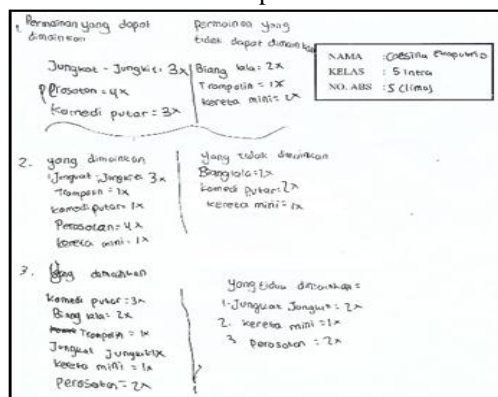 1. Permainan yang dapat dimainkan
Jungkat - Jungkit: 3x
Perosotan = 4x
komedi putar = 3x
permainan yang tidak dapat dimainkan
Biang lala = 2x
Trampolin = 1x
kereta mini = 2x
NAMA :
KELAS : 5 intra
NO. ABS : 5 (lima)
2. yang dimainkan
Jungkat - Jungkit 3x
Trampolin = 1x
komedi putar = 1x
Perosotan = 4x
kereta mini = 1x
yang tidak dimainkan
Biang lala = 2x
komedi putar = 2x
kereta mini = 1x
3. yang dimainkan
komedi putar = 3x
Biang lala = 2x
Trampolin = 1x
Jungkat Jungkit 1x
kereta mini = 1x
perosotan = 2x
yang tidak dimainkan =
1. Jungkat Jungkit = 2x
2. kereta mini = 1x
3. perosotan = 2x